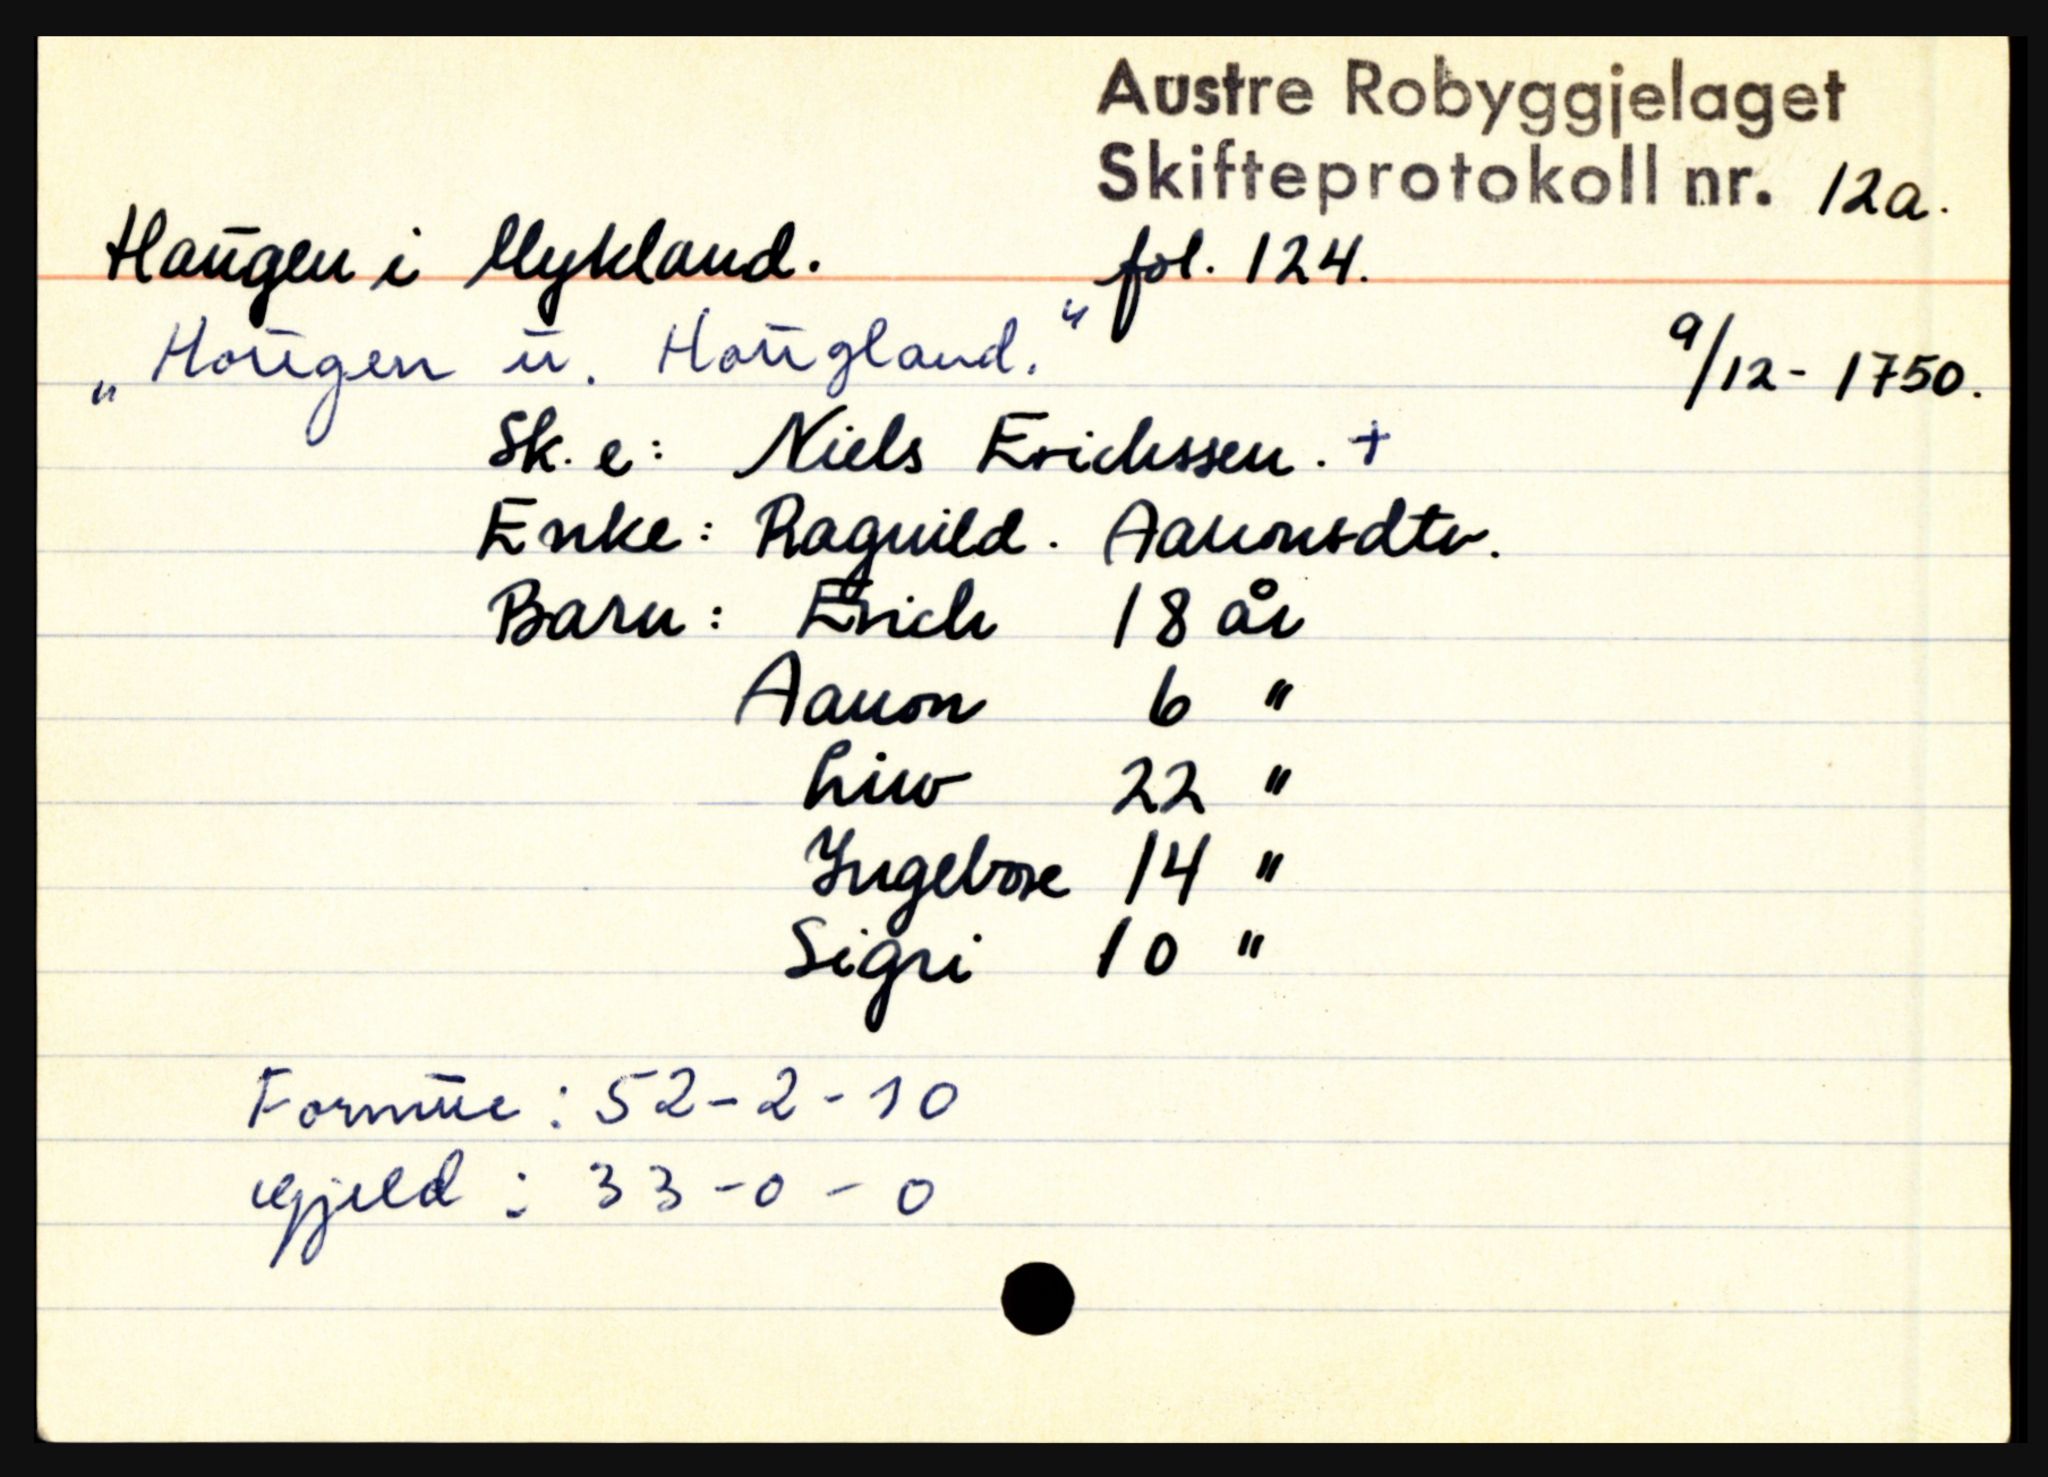 Austre Robyggjelaget
Skifteprotokoll nr. 12a.
Haugen i Mykland. fol. 124.
„Hougen u. Hougland." 9/12-1750.
Sk. e: Niels Erichssen. +
Enke: Ragnild. Aanonsdtr.
Barn: Erich 18 år
Aanon 6 "
Liw 22 "
Yngebore 14 "
Sigri 10 "
Formue: 52-2-10
Gjeld: 33-0-0